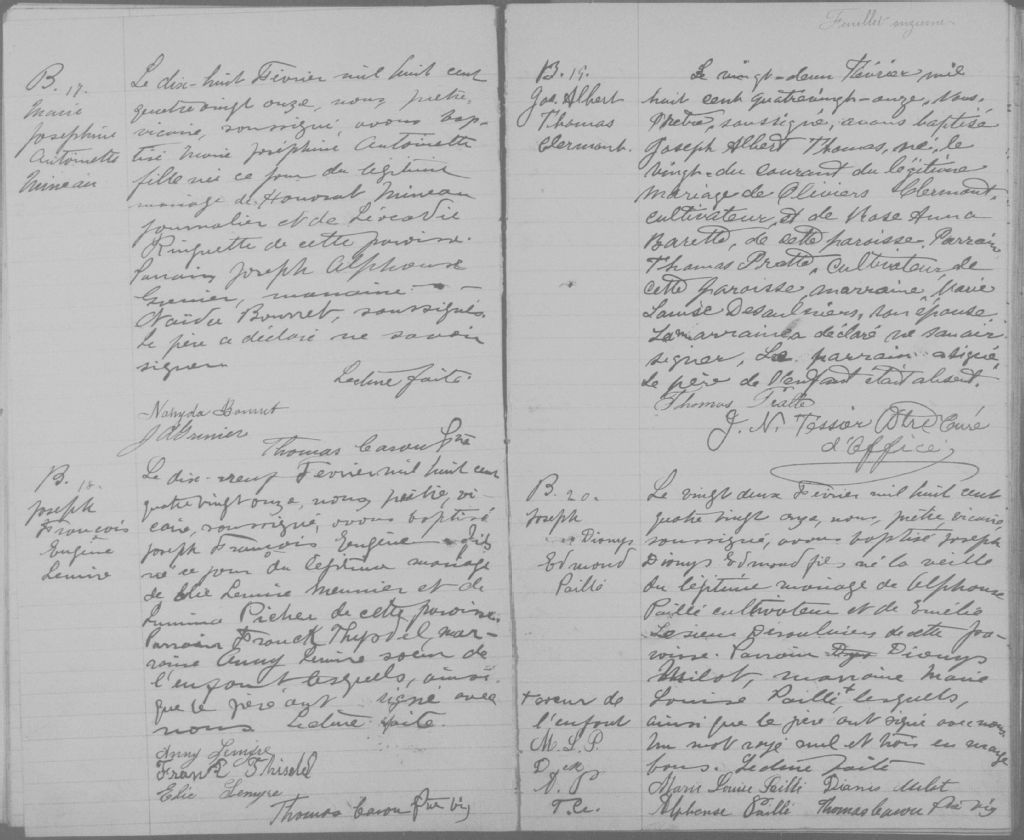 Feuillet onzième
B. 17.
Marie
Joséphine
Antoinette
Mineau
Le dix-huit Février mil huit cent
quatre vingt onze, nous, prêtre,
vicaire, soussigné, avons bap-
tisé Marie Joséphine Antoinette
fille née ce jour du légitime
mariage de Honorat Mineau
journalier et de Léocadie
Ringuette de cette paroisse.
Parrain Joseph Alphonse
Grenier, marraine
Naïda Bourret, soussignés.
Le père a déclaré ne savoir
signer
Lecture faite.
Nahyda Bourret
J A Grenier
Thomas Caron Ptre
B. 18.
Joseph
François
Eugène
Lemire
Le dix-neuf Février mil huit cent
quatre vingt onze, nous, prêtre, vi-
caire, soussigné, avons baptisé
Joseph François Eugène fils
né ce jour du légitime mariage
de Elie Lemire meunier et de
Picher de cette paroisse.
Parrain Franck mar-
raine Anny Lemire soeur de
l'enfant lesquels, ainsi
que le père ont signé avec
nous Lecture faite.
Anny Lemire
Frank
Elie Lemyre
Thomas Caron ptre vic
B. 19.
Jos. Albert
Thomas
Clermont.
Le vingt-deux Février mil
huit cent quatrevingt-onze, Nous,
Prêtre, soussigné, avons baptisé
Joseph Albert Thomas, né, le
vingt-du courant du légitime
mariage de Oliviers Clermont,
cultivateur, et de Rose Anna
Barette, de cette paroisse, Parrain
Thomas Pratte, cultivateur de
cette paroisse, marraine, Marie
Louise Desaulniers, son épouse,
La marraine a déclaré ne savoir
signer, Le parrain a signé,
Le père de l'enfant était absent.
Thomas Pratte
J. N. Tessier Ptre Curé
d'Office
B. 20.
Joseph
Dionys
Edmond
Paillé
Le vingt deux Février mil huit cent
quatre vingt onze, nous, prêtre vicaire
soussigné, avons baptisé Joseph
Dionys Edmond fils né la veille
du légitime mariage de Alphonse
Paillé cultivateur et de Emélie
Lesieur Desaulniers de cette pa-
roisse. Parrain Dionys
Milot, marraine Marie
Louise Paillé + lesquels,
ainsi que le père ont signé avec nous
Un mot rayé nul et trois en marge
bons. Lecture faite
+ soeur de
l'enfant
M. L. P.
A. P.
T. C.
Marie Louise Paillé Dionis Milot
Alphonse Paillé Thomas Caron ptre vic